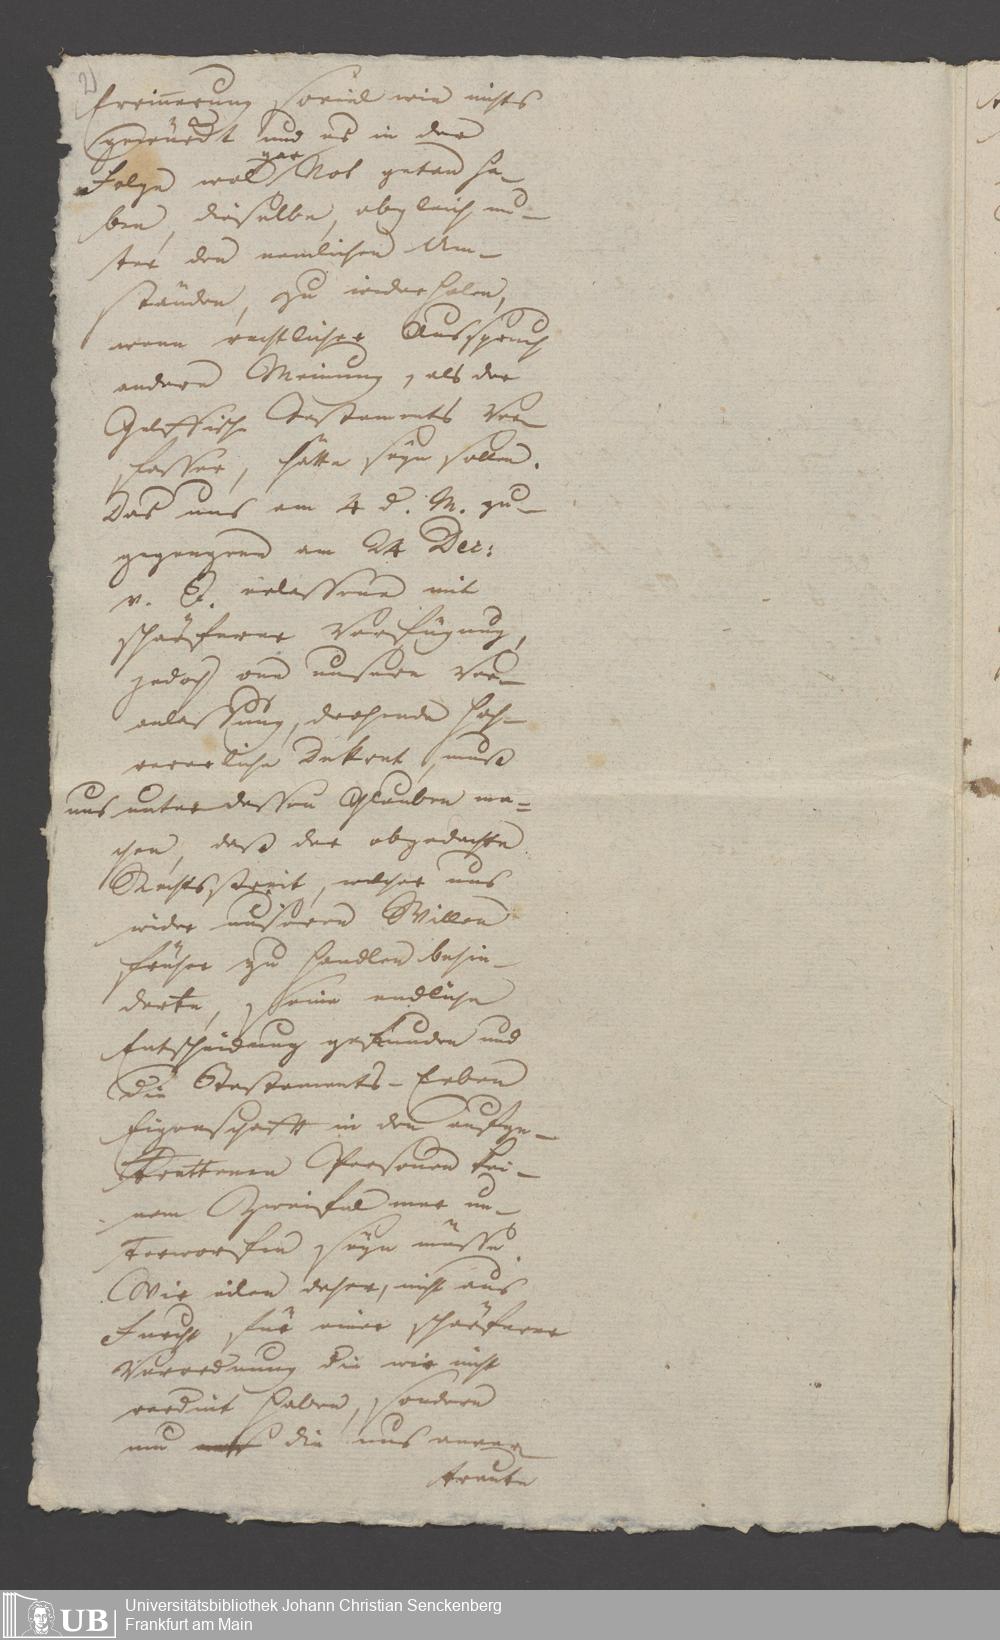 2)
Errinnerung soviel wie nichts
gefrüdt und es in der
Folge wol gar Not getan ha-
ben, dieselbe, obgleich un-
ter den nemlichen Um-
ständen, zu widerholen,
wenn rechtlicher Ausspruch
andern Meinung, als der
Testaments Ver-
fasser, hätte seyn sollen.
Das uns am 4 d. M. zu-
gegangene am 24 Dec:
v. J. erlassene mit
schärferer Verfügung,
jedoch one unsere Ver-
anlassung, drohende hoch-
vererliche Dekret, muß
uns unterdessen Glauben ma-
chen, daß der obgedachte
Rechtsstreit, welcher uns
wider unseren Willen
früher zu handlen behin-
derte, seine endliche
Entscheidung gefunden und
die Testaments-Erben
Eigenschafft in den aufge-
trettenen Personen kei-
nem Zweifel mer un-
terworfen seyn müsse.
Wir eilen daher, nicht aus
Furcht für einer schärferen
Verordnung die wir nicht
verdint haben, sondern
um die uns anver-
traute
UB
Universitätsbibliothek Johann Christian Senckenberg
Frankfurt am Main